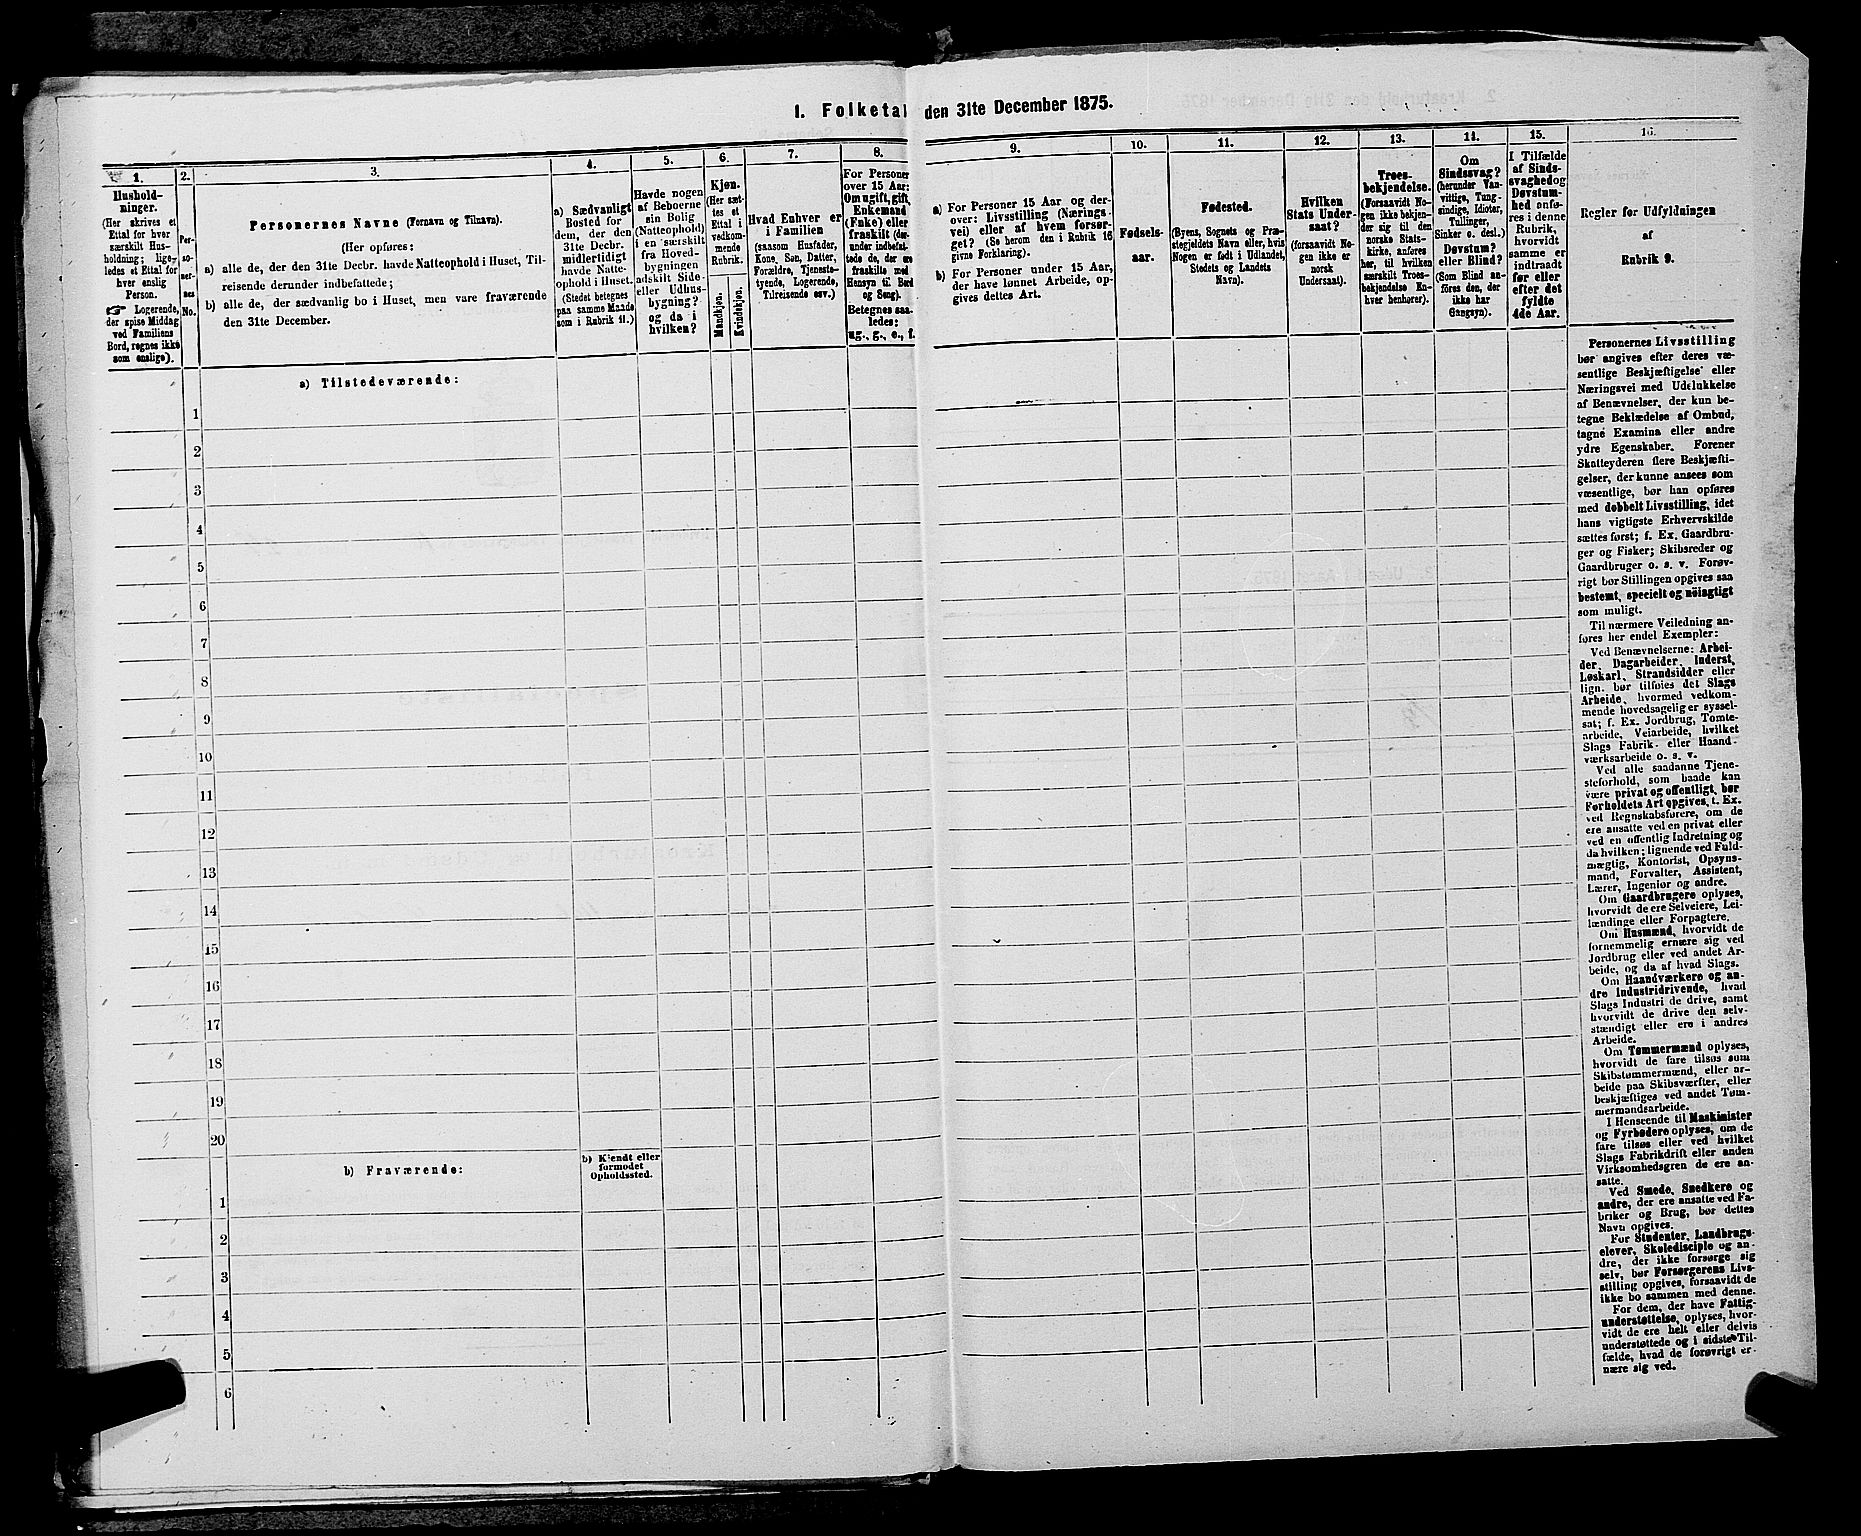 1. Folketal den 31te December 1875.
1.
Hushold-
ninger.
(Her skrives et
Ettal for hver
særskilt Hus-
holdning; lige-
ledes et Ettal for
hver enslig
Person.
☞ Logerende,
der spise Middag
ved Familiens
Bord, regnes ikke
som enslige).
2.
Per-
so-
ner-
nes
No.
3.
Personernes Navne (Fornavn og Tilnavn).
(Her opføres:
a) alle de, der den 31te Decbr. havde Natteophold i Huset, Til-
reisende derunder indbefattede;
b) alle de, der sædvanlig bo i Huset, men vare fraværende
den 31te December.
4.
a) Sædvanligt
Bosted for
dem, der den
31te Decbr.
midlertidigt
havde Natte-
ophold i Huset.
(Stedet betegnes
paa samme Maade
som i Rubrik 11.)
5.
Havde nogen
af Beboerne
sin Bolig
(Natteophold)
i en særskilt
fra Hoved-
bygningen
adskilt Side-
eller Udhus-
bygning?
og da i
hvilken?
6.
Kjøn.
(Her sæt-
tes et
Ettal i
vedkom-
mende
Rubrik.
Mandkjøn.
Kvindekjøn.
7.
Hvad Enhver er
i Familien
(saasom Husfader,
Kone, Søn, Datter,
Forældre, Tjeneste-
tyende, Logerende,
Tilreisende osv.)
8.
For Personer
over 15 Aar:
Om ugift, gift,
Enkemand
(Enke) eller
fraskilt (der-
under indbefat-
tede de, der ere
fraskilte med
Hensyn til Bord
og Seng).
Betegnes saa-
ledes:
ug., g., e., f.
9.
a) For Personer 15 Aar og der-
over: Livsstilling (Nærings-
vei) eller af hvem forsør-
get? (Se herom den i Rubrik 16
givne Forklaring).
b) For Personer under 15 Aar,
der have lønnet Arbeide, op-
gives dettes Art.
10.
Fødsels-
aar.
11.
Fødested.
(Byens, Sognets og Præ-
stegjeldets Navn eller, hvis
Nogen er født i Udlandet,
Stedets og Landets
Navn).
12.
Hvilken
Stats Under-
saat?
(forsaavidt No-
gen ikke er
norsk
Undersaat).
13.
Troes-
bekjendelse.
(Forsaavidt No-
gen ikke bekjen-
der sig til den
norske Stats-
kirke, anføres
her, til hvilken
særskilt Troes-
bekjendelse En-
hver henhører).
14.
Om
Sindssvag?
(herunder Van-
vittige, Tung-
sindige, Idioter,
Tullinger,
Sinker o. desl.)
Døvstum?
eller Blind?
(Som Blind an-
føres den, der
ikke har
Gangsyn).
15.
I Tilfælde
af Sinds-
svaghed og
Døvstum-
hed onfø-
res i denne
Rubrik,
hvorvidt
samme er
indtraadt
før eller
efter det
fyldte
4de Aar.
16.
Regler for Udfyldningen
af
Rubrik 9.
a) Tilstedeværende:
1
2
3
4
5
6
7
8
9
10
11
12
13
14
15
16
17
18
19
20
b) Fraværende:
b) Kjendt eller
formodet
Opholdssted.
1
2
3
4
5
6
Personernes Livsstilling
bør angives efter deres væ-
sentlige Beskjæftigelse eller
Næringsvei med Udelukkelse
af Benævnelser, der kun be-
tegne Beklædelse af Ombud,
tagne Examina eller andre
ydre Egenskaber. Forener
Skatteyderen flere Beskjæfti-
gelser, der kunne ansees som
væsentlige, bør han opføres
med dobbelt Livsstilling, idet
hans vigtigste Erhvervskilde
sættes først; f. Ex. Gaardbru-
ger og Fisker; Skibsreder og
Gaardbruger o. s. v. Forøv-
rigt bør Stillingen opgives saa
bestemt, specielt og nöiagtigt
som muligt.
Til nærmere Veiledning an-
føres her endel Exempler:
Ved Benævnelserne: Arbei-
der, Dagarbeider, Inderst,
Løskarl, Strandsidder eller
lign. bør tilføies det Slags
Arbeide, hvormed vedkom-
mende hovedsagelig er syssel-
sat; f. Ex. Jordbrug, Tomte-
arbeide, Veiarbeide, hvilket
Slags Fabrik- eller Haand-
værksarbeide o. s. v.
Ved alle saadanne Tjene-
steforhold, som baade kan
være privat og offentligt, bør
Forholdets Art opgives, t. Ex.
ved Regnskabsførere, om de
ere ansatte ved en privat eller
ved en offentlig Indretning og
da hvilken; lignende ved Fuld-
mægtig, Kontorist, Opsyns-
mand, Forvalter, Assistent,
Lærer, Ingeniør og andre.
Om Gaardbrugere oplyses,
hvorvidt de ere Selveiere, Lei-
lændinge eller Forpagtere.
Om Husmænd, hvorvidt de
fornemmelig ernære sig ved
Jordbrug eller ved andet Ar-
beide, og da af hvad Slags.
Om Haandværkere og an-
dre Industridrivende, hvad
Slags Industri de drive, samt
hvorvidt de drive den selv-
stændigt eller ere i andres
Arbeide.
Om Tømmermænd oplyses,
hvorvidt de fare tilsøs som
Skibstømmermænd, eller ar-
beide paa Skibsværfter, eller
beskjæftiges ved andet Tøm-
mermandsarbeide.
I Henseende til Maskinister
og Fyrbødere oplyses, om de
fare tilsøs eller ved hvilket
Slags Fabrikdrift eller anden
Virksomhedsgren de ere an-
satte.
Ved Smede, Snedkere og
andre, der ere ansatte ved Fa-
briker og Brug, bør dettes
Navn opgives.
For Studenter, Landbrugs-
elever, Skoledisciple og an-
dre, der ikke forsørge sig
selv, bør Forsørgerens Livs-
stilling opgives, forsaavidt de
ikke bo sammen med denne.
For dem, der have Fattig-
understøttelse, oplyses, hvor-
vidt de ere helt eller delvis
understøttede og i sidste Til-
fælde, hvad de forøvrigt er-
nære sig ved.